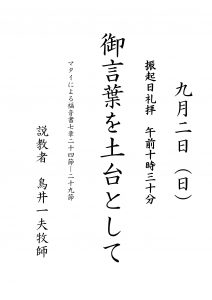 九月二日（日）
振起日礼拝　午前十時三十分
御言葉を土台として
マタイによる福音書七章二十四節―二十九節
説教者　鳥井一夫牧師